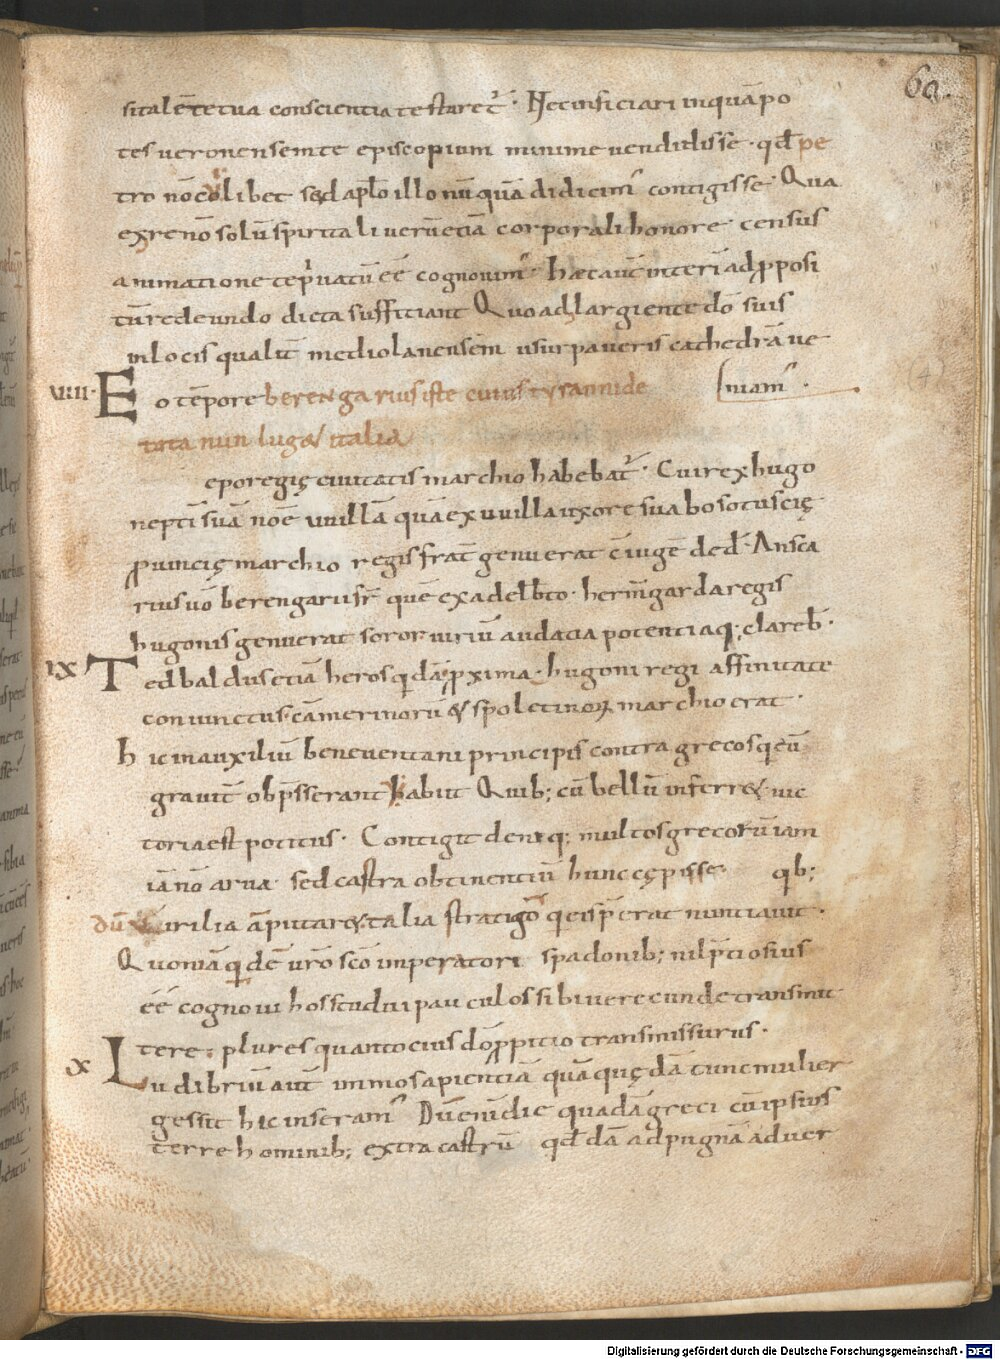 60.
sitalē te tua conscientia testaret᷑. Nec insiciari inquā po
tes ueronensem te episcopium minime uendidisse. qđ pe
tro nō colibet sed aplo illo nūquā didicim᷒ contigisse. Qua
ex re nō solū spiritali uerū etiā corporali honore census
animatione te p̱uatū eē cognouim᷒. hæc aut̄ interī ad ꝓposi
tū redeundo dicta suffitiant. Quo adlargiente dō suis
in locis qualit̄ mediolanensem usurpaueris cathedrā ue
VIIII. Eo tēpore berengarius iste cuius tyrannide
niam᷒.
(4)
tota nun luget italia
eporegię ciuitatis marchio habebat᷑. Cui rex hugo
neptī suā noē uuillā quā ex uuilla uxore sua boso tuscię
ꝓuincię marchio regis frat̄ genuerat c̄iugē ded̄. Ansca
rius uō berengarii fr̄ quē ex adelb̄to. hermīgarda regis
hugonis genuerat soror uiriū audacia potentiaq; clareb̄.
IX Tedbaldus etiā heros qidā ꝓxima. hugoni regi affinitate
coniunctus camerinorū & spoletinoꝝ marchio erat.
hic in auxiliū beneuentani principis contra grecos qi eū
grauit̄ obp̄sserant habiit. Quib; cū bellū inferret. uic
toria est potitus. Contigit deniq; multos grecorū iam
iā nō arua. sed castra obtinentiū hunc cępisse. qib;
dū uirilia āputaret. talia stratigō qi eis p̱erat nuntiauit.
Quoniā qidē uro scō imperatori spadonib; nil p̄tiosius
eē cognoui hos studui pauculos sibi uerecunde transmit
tere. plures quantocius dō ꝓpitio transmissurus.
X Ludibriū aut̄ immo sapientiā quā quędā tunc mulier
gessit hic inseram᷒. Dū enī die quadā greci cū ipsius
terre hominib; extra castrū qđdā ad pugnā aduer
Digitalisierung gefördert durch die Deutsche Forschungsgemeinschaft - DFG